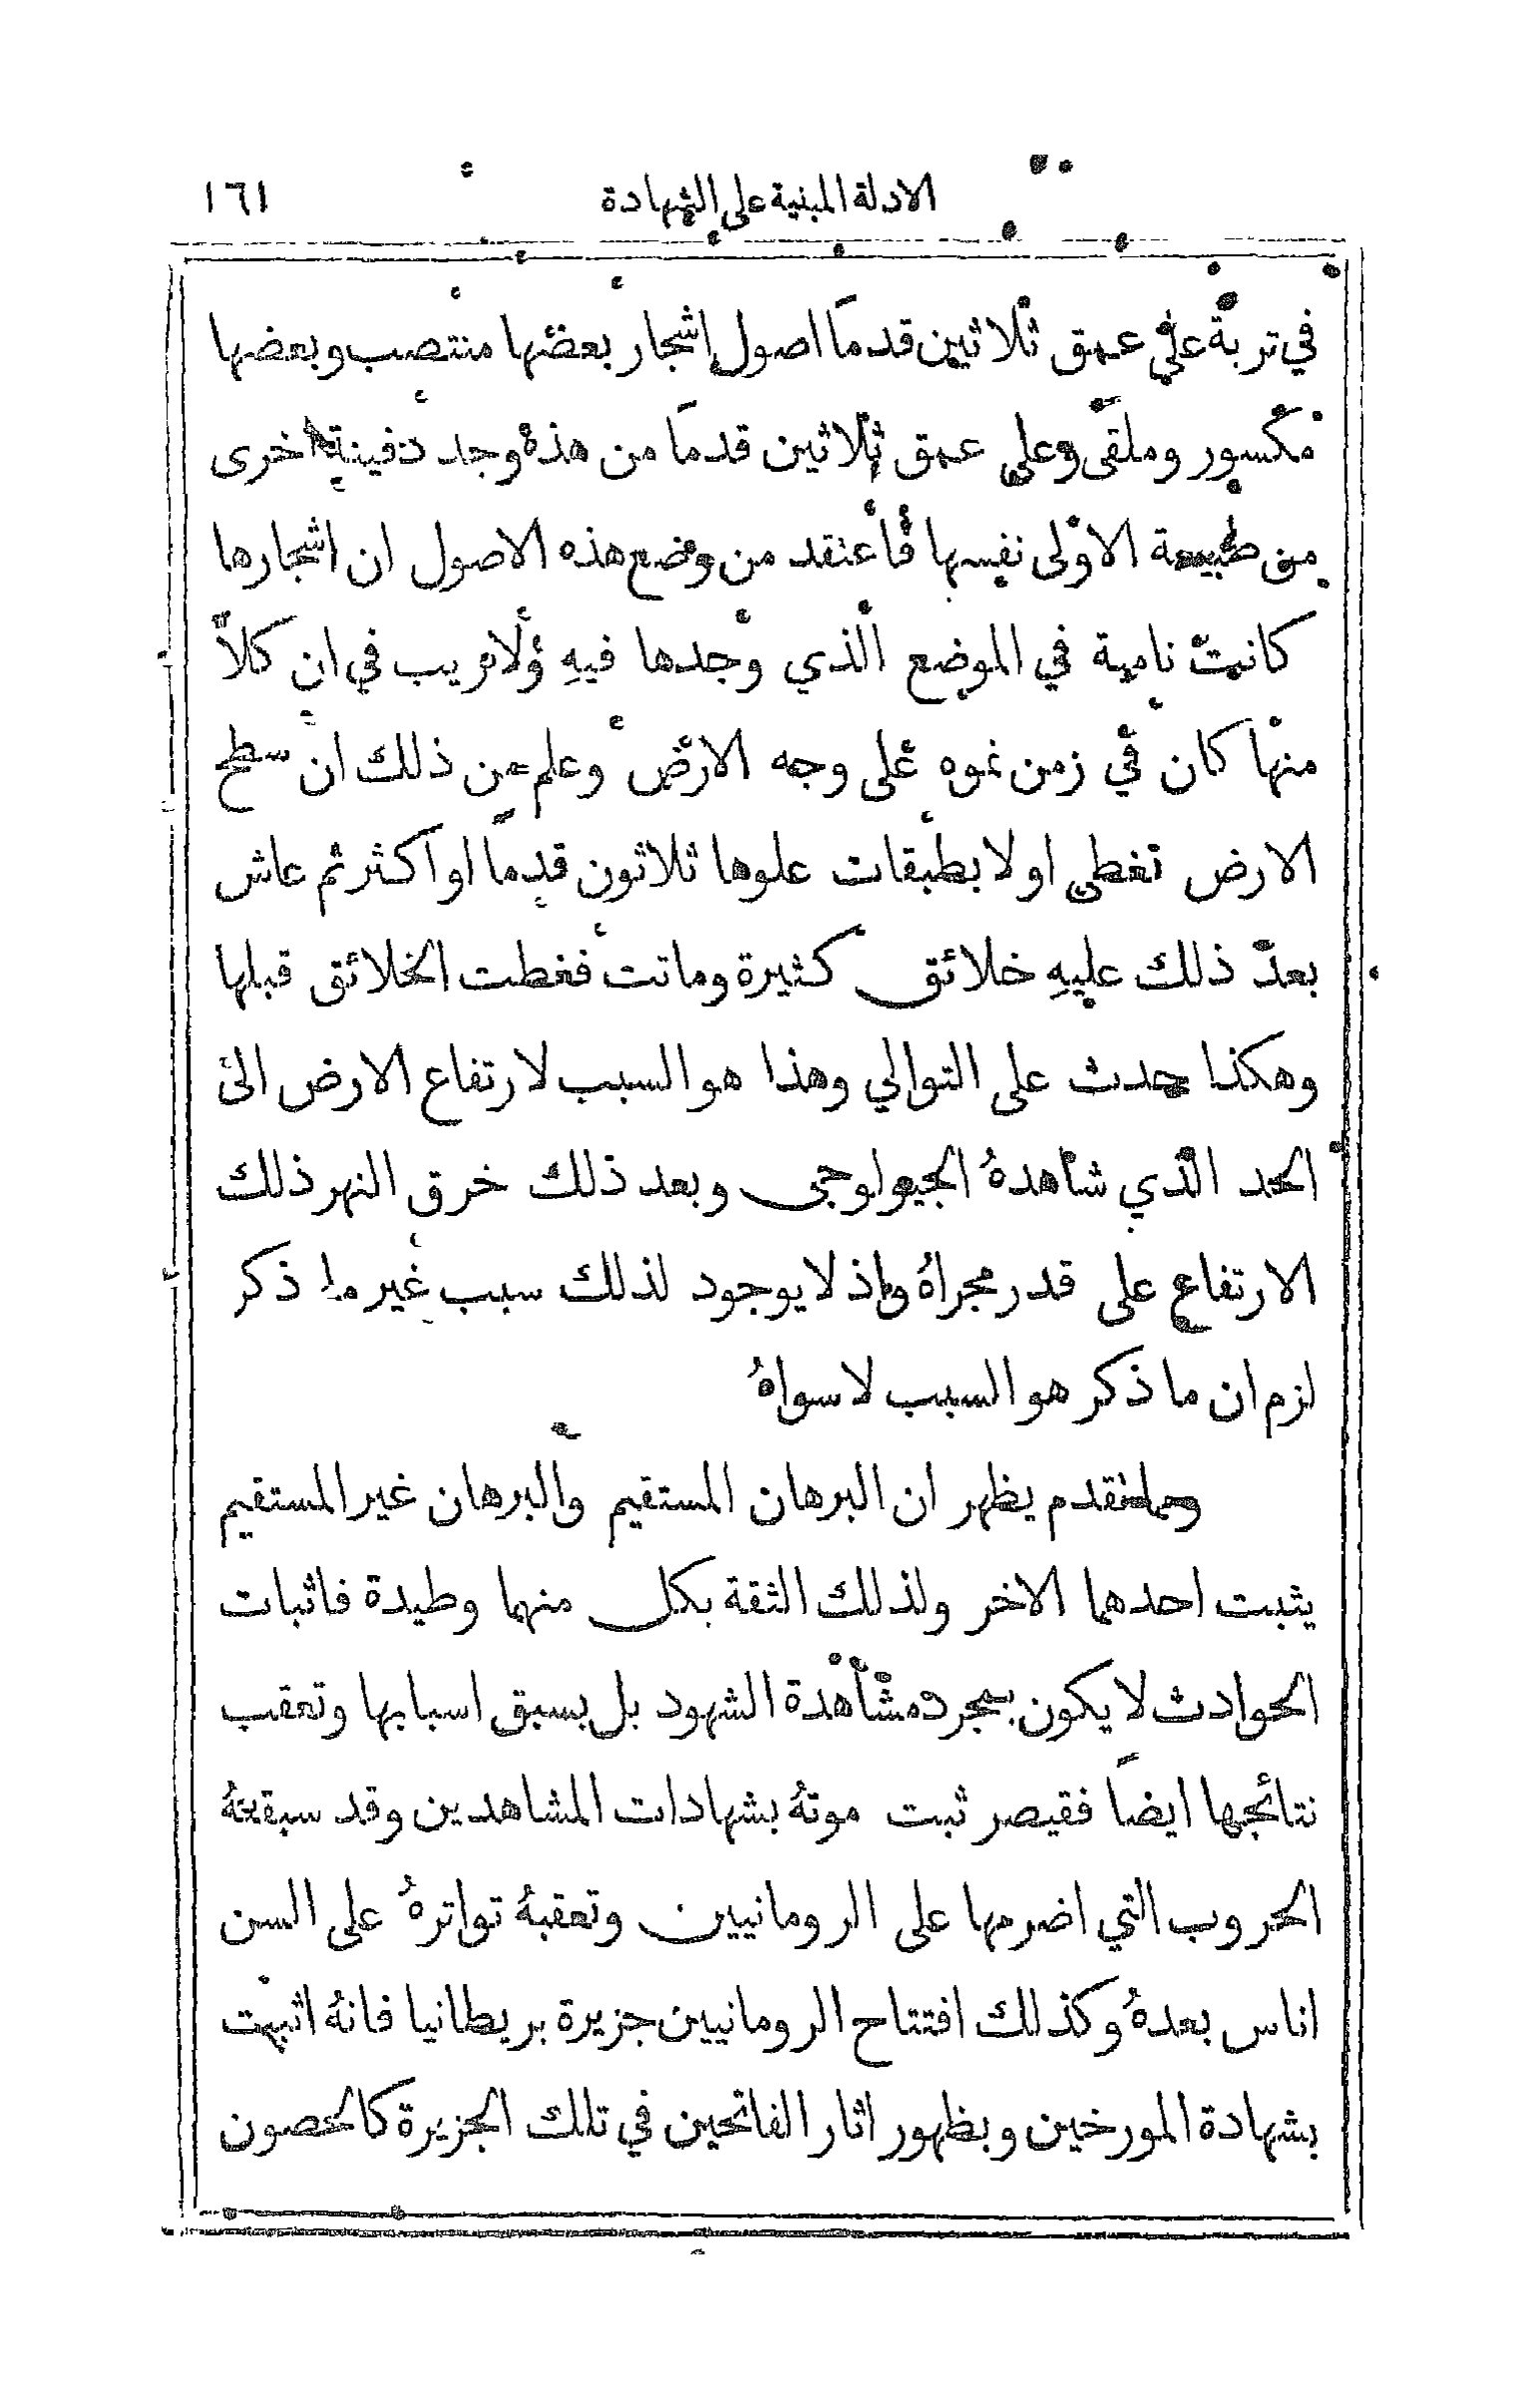 الادلة المبنية على الشهادة ١٦١
في تربة على عمق ثلاثين قدمًا اصول اشجار بعضها منتصب وبعضها
مكسور وملقى وعلى عمق ثلاثين قدمًا من هذه وجد دفينة اخرى
من طبيعة الاولى نفسها فاعتقد من وضع هذه الاصول ان اشجارها
كانت نامية في الموضع الذي وجدها فيهِ ولا ريب في ان كلاًّ
منها كان في زمن نموه على وجه الارض وعلم من ذلك ان سطح
الارض تغطى اولا بطبقات علوها ثلاثون قدمًا او اكثر ثم عاش
بعد ذلك عليهِ خلائق كثيرة وماتت فغطت الخلائق قبلها
وهكذا حدث على التوالي وهذا هو السبب لارتفاع الارض الى
الحد الذي شاهدهُ الجيولوجي وبعد ذلك خرق النهر ذلك
الارتفاع على قدر مجراهُ واذ لا يوجود لذلك سبب غير ما ذكر
لزم ان ما ذكر هو السبب لا سواهُ
ومما تقدم يظهر ان البرهان المستقيم والبرهان غير المستقيم
يثبت احدهما الاخر ولذلك الثقة بكل منهما وطيدة فاثبات
الحوادث لا يكون بمجرد مشاهدة الشهود بل بسبق اسبابها وتعقب
نتائجها ايضًا فقيصر ثبت موتهُ بشهادات المشاهدين وقد سبقتهُ
الحروب التي اضرمها على الرومانيين وتعقبهُ تواترهُ على السن
اناس بعدهُ وكذلك افتتاح الرومانيين جزيرة بريطانيا فانهُ اثبت
بشهادة المورخين وبظهور اثار الفاتحين في تلك الجزيرة كالحصون